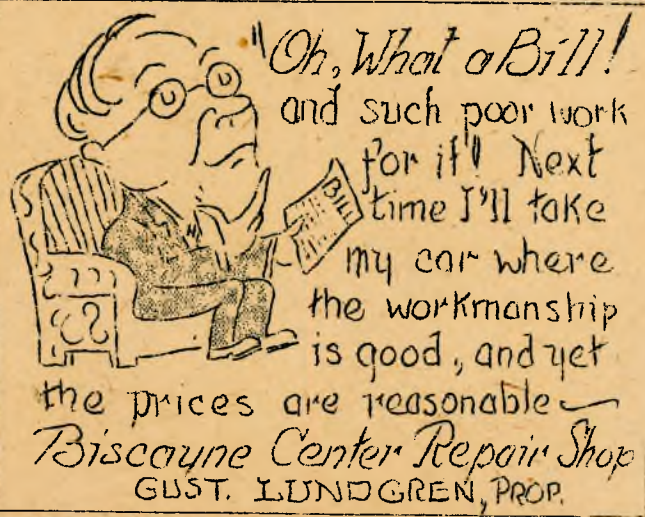 "Oh, What a Bill!
and such poor work
for it"! Next
BILL
time I'll take
my car where
the workmanship
is good, and yet
the prices are reasonable —
Biscayne Center Repair Shop
GUST. LUNDGREN, PROP.